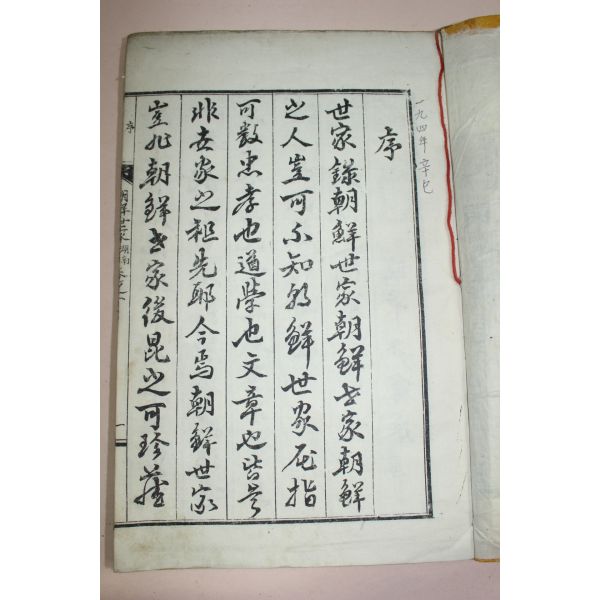 一九四年 辛巳
序
世家錄朝鮮世家朝鮮世家朝鮮
之人豈可不知朝鮮世家屈指
可數忠孝也道學也文章也皆是
非世家之祖先耶今焉朝鮮世家
豈非朝鮮世家後昆之可珍藏
序
朝鮮世家 湖南 卷之
一